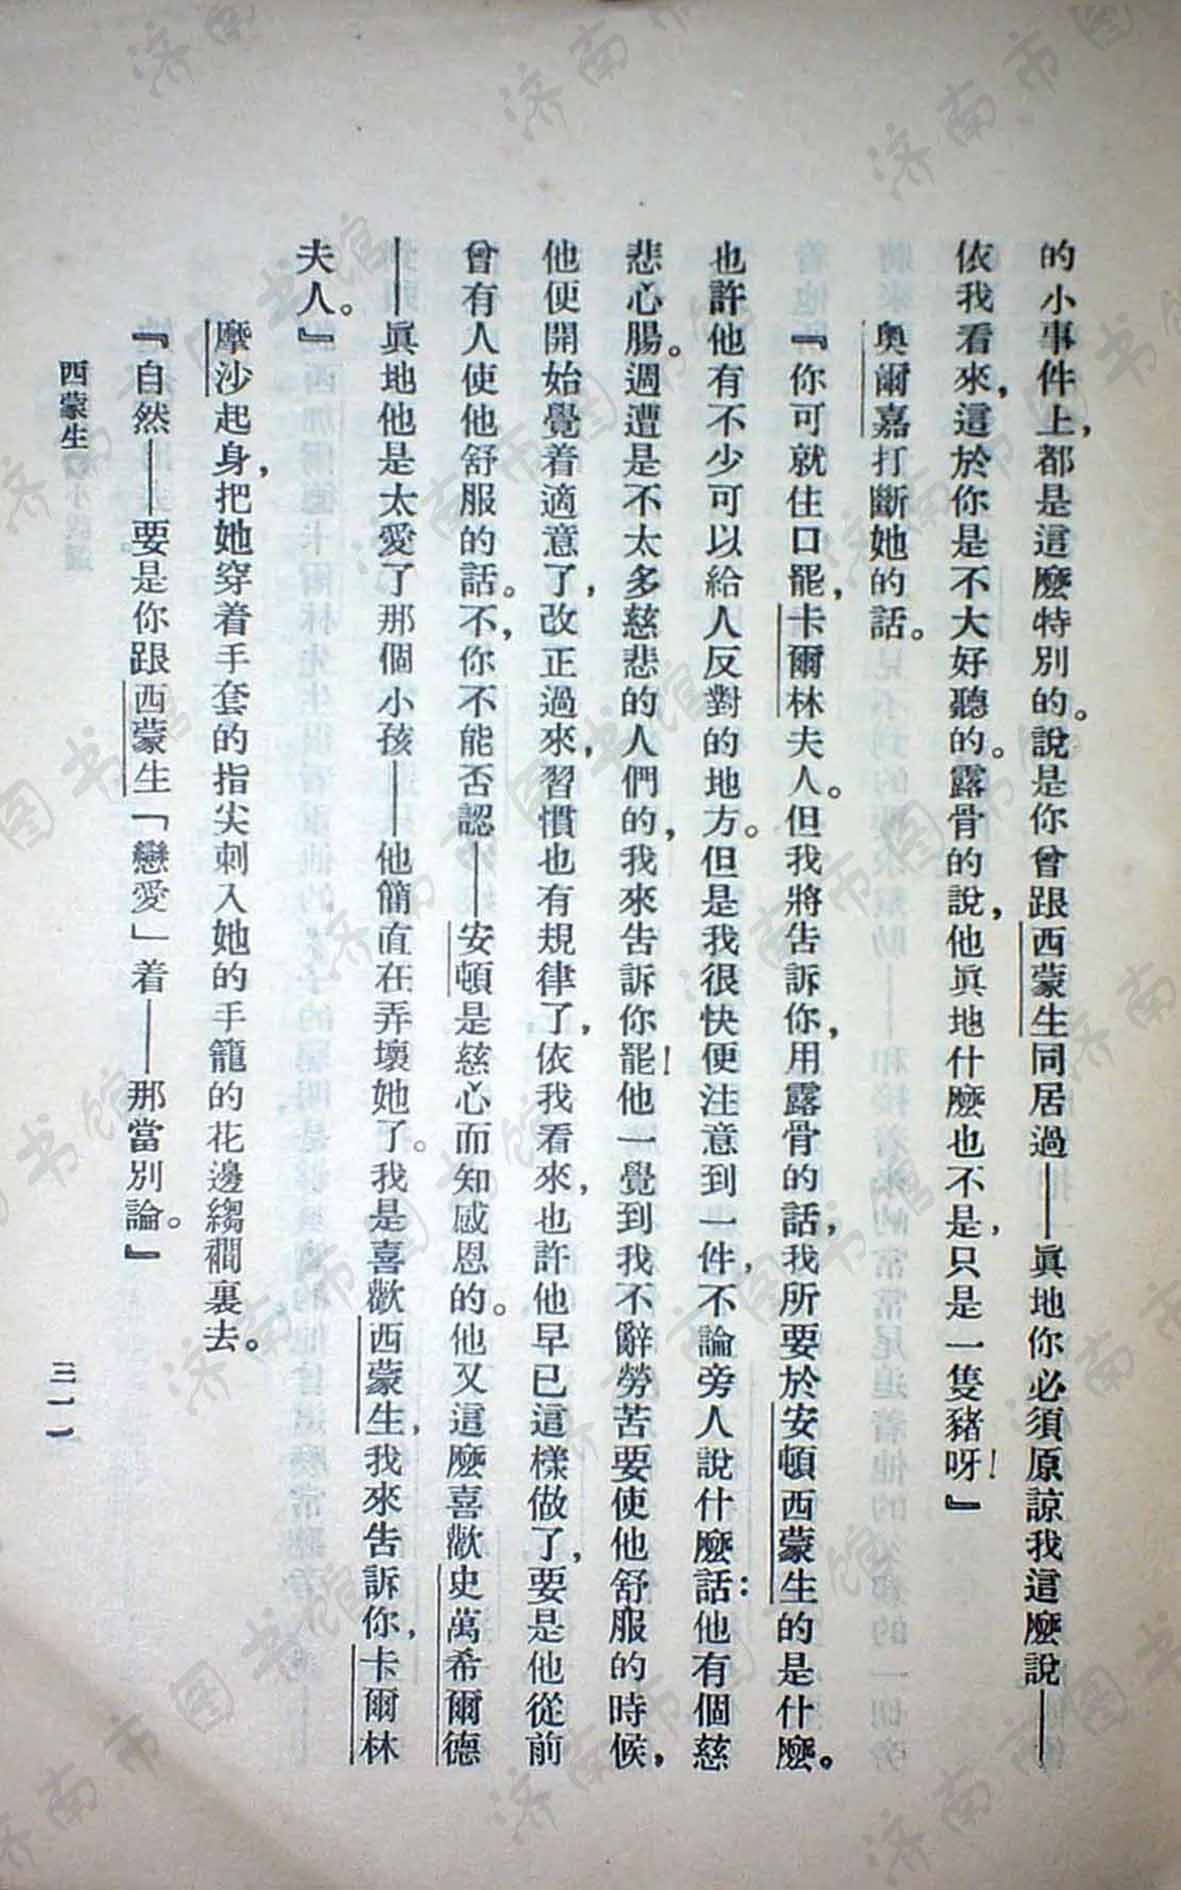 的小事件上，都是這麼特別的。說是你曾跟西蒙生同居過——眞地你必須原諒我這麼說——
依我看來，這於你是不大好聽的。露骨的說，他眞地什麼也不是，只是一隻豬呀！』
奧爾嘉打斷她的話。
『你可就住口罷，卡爾林夫人。但我將告訴你，用露骨的話，我所要於安頓西蒙生的是什麼。
也許他有不少可以給人反對的地方。但是我很快便注意到一件，不論旁人說什麼話：他有個慈
悲心腸。週遭是不太多慈悲的人們的，我來告訴你罷！他一覺到我不辭勞苦要使他舒服的時候，
他便開始覺着適意了，改正過來，習慣也有規律了，依我看來，也許他早已這樣做了，要是他從前
曾有人使他舒服的話。不，你不能否認——安頓是慈心而知感恩的。他又這麼喜歡史萬希爾德
——眞地他是太愛了那個小孩——他簡直在弄壞她了。我是喜歡西蒙生，我來告訴你，卡爾林
夫人。』
摩沙起身，把她穿着手套的指尖刺入她的手籠的花邊縐襉裏去。
『自然——要是你跟西蒙生「戀愛」着——那當別論。』
西蒙生
三一一
济南市图书馆